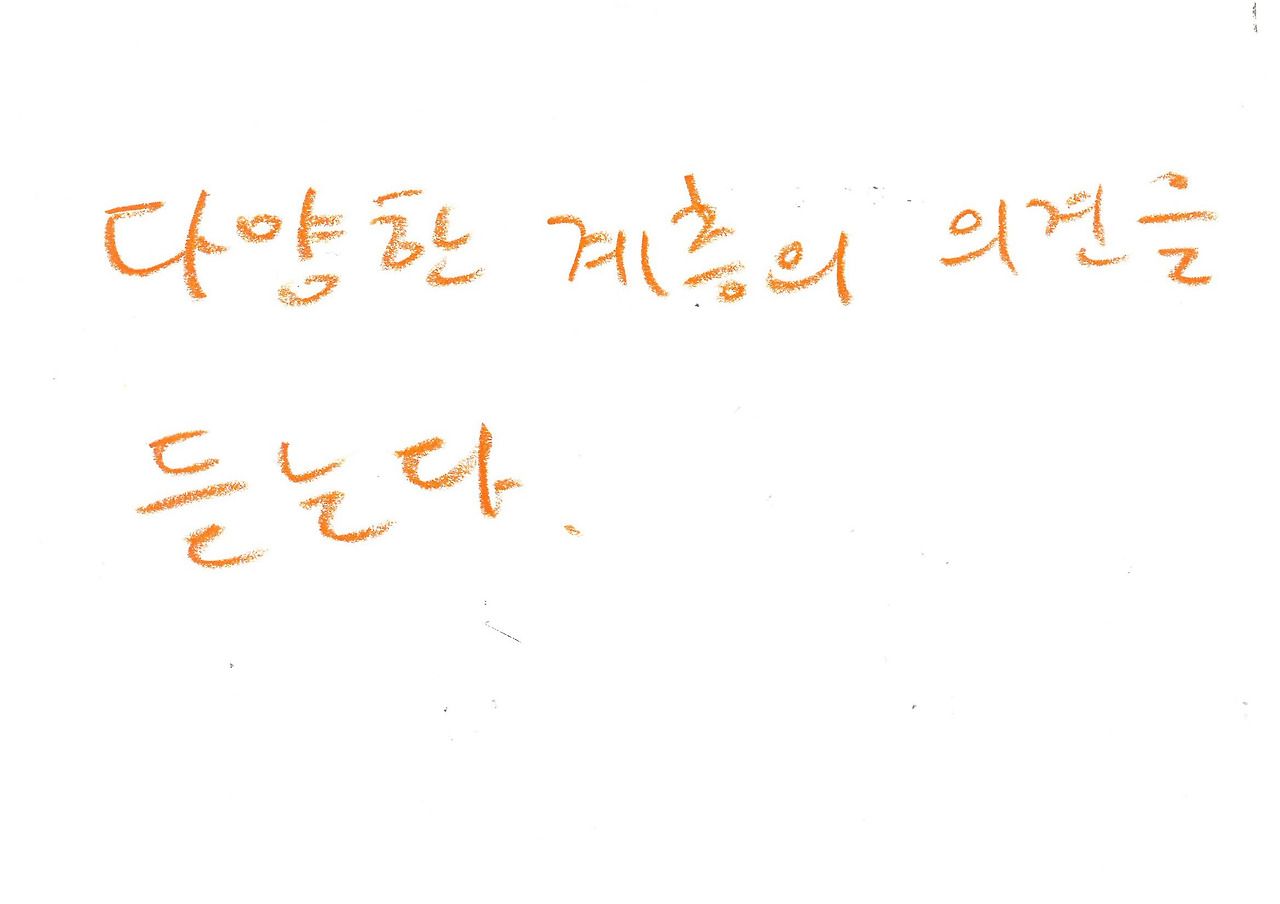 다양한 계층의 의견을
듣는다.